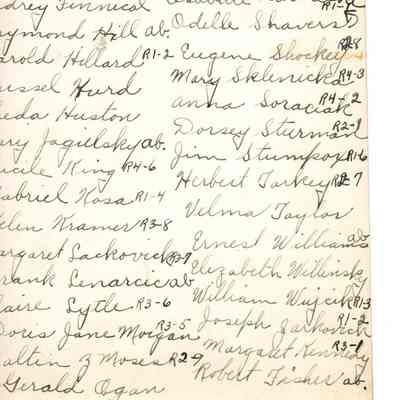 drey Finnical
aymond Hill ab.
arold Hillard R1-2
ussel Hurd
eda Huston
ary Jagielsky ab.
ucile King R4-6
abriel Kosa R1-4
elen Kramer R3-8
argaret Lackovich R3-7
rank Lenarcic ab
laire Lytle R3-6
Doris Jane Morgan R3-5
altin J Moses R2-9
Gerald Ogan
Odelle Shavers 5
Eugene Shockey R2-8
Mary Sklenicka R4-3
Anna Soraciak R4-2
Dorsey Sturman R2-9
Jim Stumpo R1-6
Herbert Tarkey R2-7
Velma Taylor
Ernest Williams ab
Elizabeth Witlinsky
William Wujcik R1-3
Joseph Zarkovich R1-2
Margaret Kennedy R3-1
Robert Fisher ab.